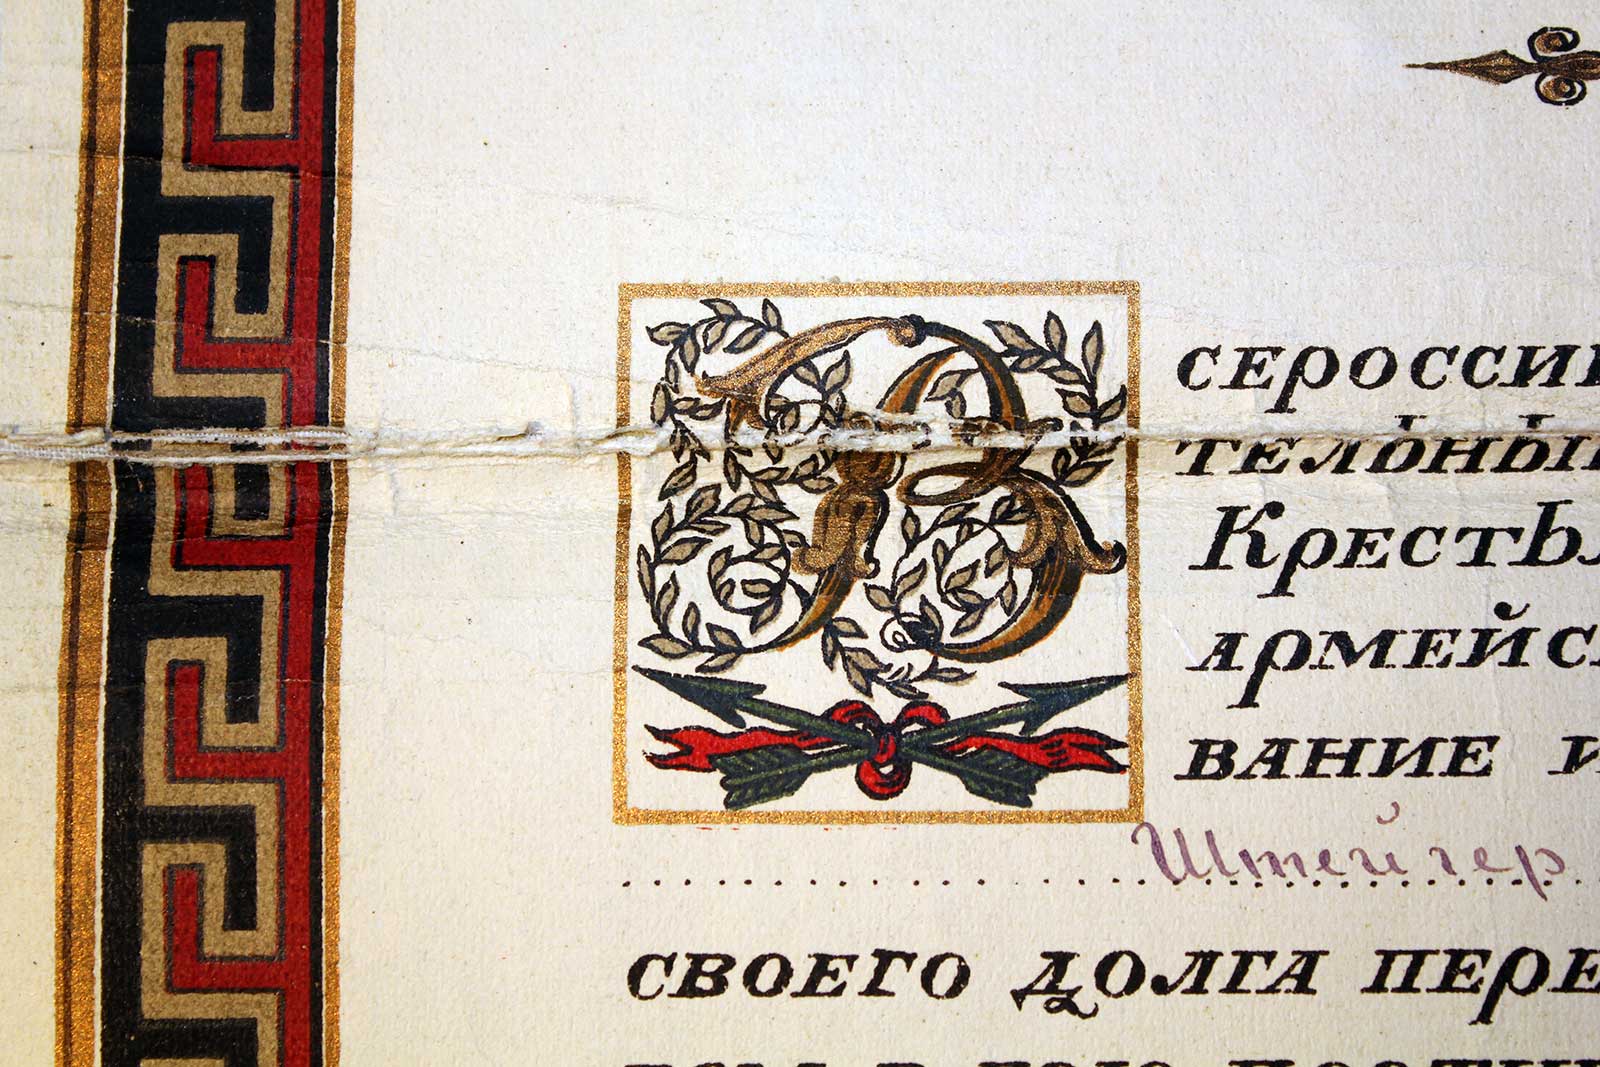 В СЕРОССИЙ
ТЕЛЬНЫ
КРЕСТЬ
АРМЕЙС
ВАНИЕ И
Штейгер
СВОЕГО ДОЛГА ПЕРЕ